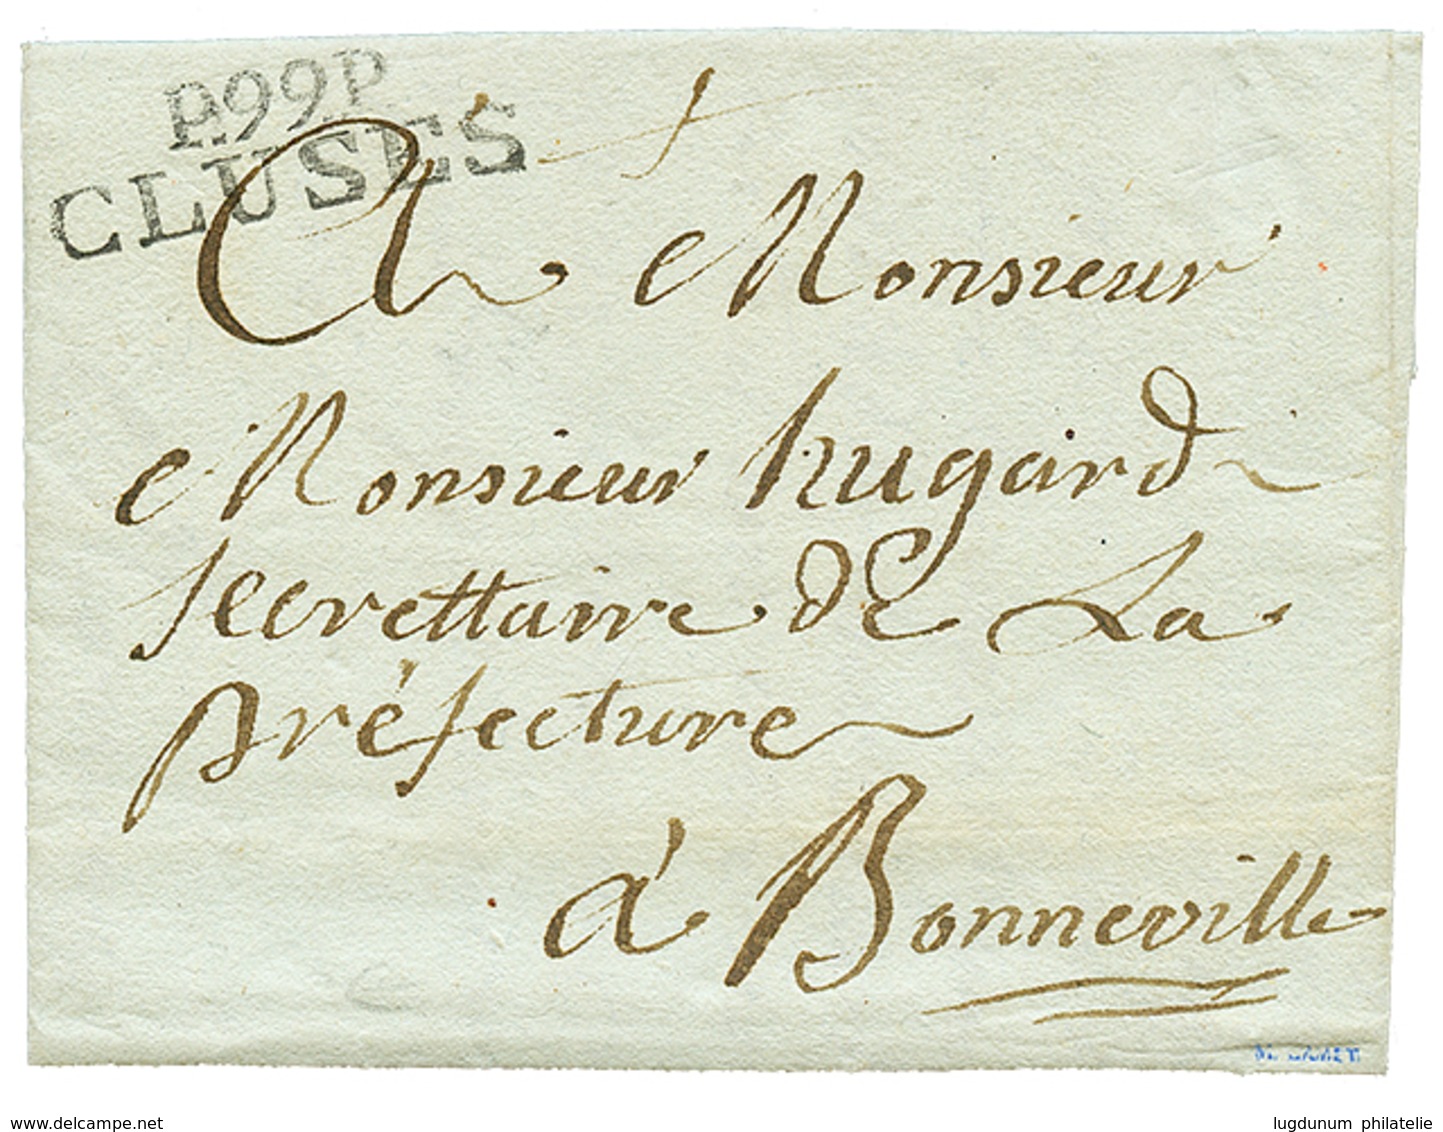 P.99.P.
CLUSES
A Monsieur
Monsieur hugard
secrettaire de La
préfecture
à Bonneville
www.delcampe.net
lugdunum philatelie